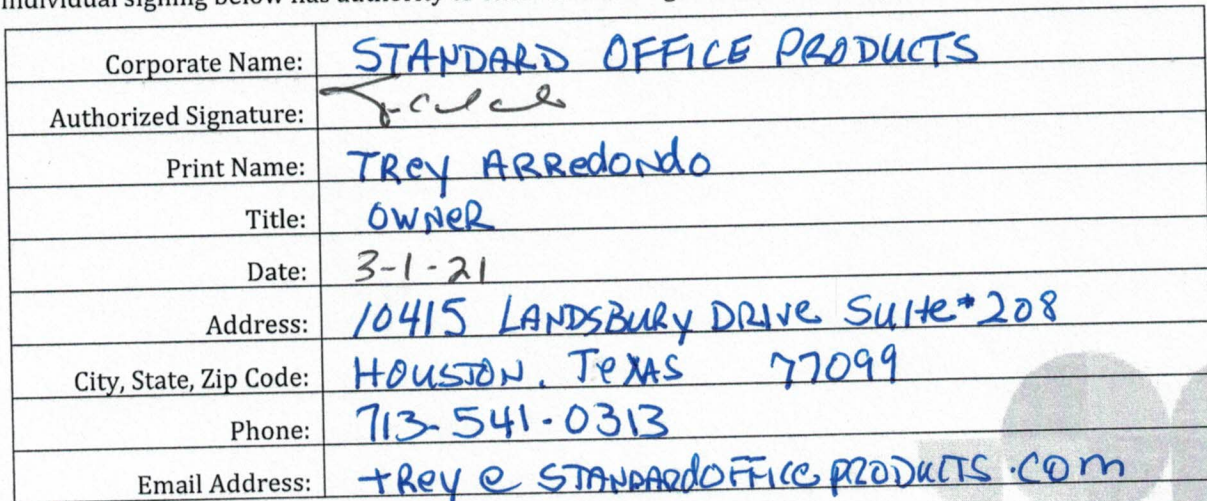 individual signing below has authority to
Corporate Name: STANDARD OFFICE PRODUCTS
Authorized Signature:
Print Name: TRey ARRedoNdo
Title: OWNeR
Date: 3-1-21
Address: 10415 LANDSBURY DRIVe SUIte #208
City, State, Zip Code: HOUSTON, TeXAS 77099
Phone: 713-541-0313
Email Address: tRey @ STANDARdOFFICePRODUCTS.COm